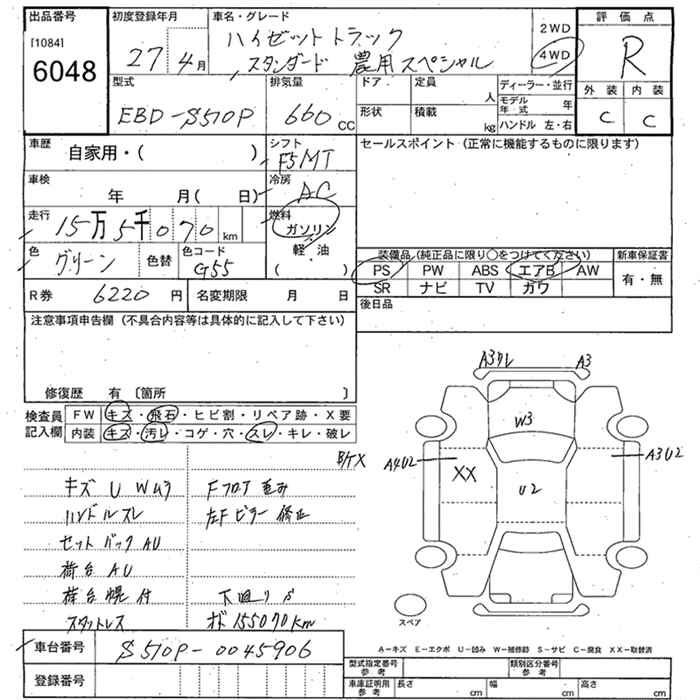 出品番号
[1084]
6048
初度登録年月
27年4月
車名・グレード
ハイゼットトラック
スタンダード 農用スペシャル
2WD
4WD
評価点
R
外装 内装
C C
型式
EBD-S510P
排気量
660 CC
ドア 定員
人
形状 積載
kg
ディーラー・並行
モデル年式 年
ハンドル 左・右
車歴 自家用・( )
シフト
F5MT
セールスポイント(正常に機能するものに限ります)
車検 年 月( 日)
冷房
AC
走行 15万5千070km
燃料
ガソリン
軽・油
( )
色 グリーン 色替 色コード G55
装備品(純正品に限り○をつけてください) 新車保証書
PS PW ABS エアB AW 有・無
SR ナビ TV ガワ
R券 6220円 名変期限 月 日
後日品
注意事項申告欄(不具合内容等は具体的に記入して下さい)
修復歴 有 〔箇所 〕
検査員記入欄
FW キズ・飛石・ヒビ割・リペア跡・X要
内装 キズ・汚レ・コゲ・穴・スレ・キレ・破レ
キズ U Wムラ
ハンドルスレ
セットバックAU
荷台AU
荷台幌付
スタットレス
左Fピラー修正
下廻りS
オド155070km
A3 W3 A4U2 XX U2 A3U2
スペア
A-キズ E-エクボ U-凹み W-補修跡 S-サビ C-腐食 XX-取替済
車台番号 S510P-0045906
登録番号
型式指定番号 参考 類別区分番号 参考
車庫証明用 参考 長さ cm 幅 cm 高さ cm